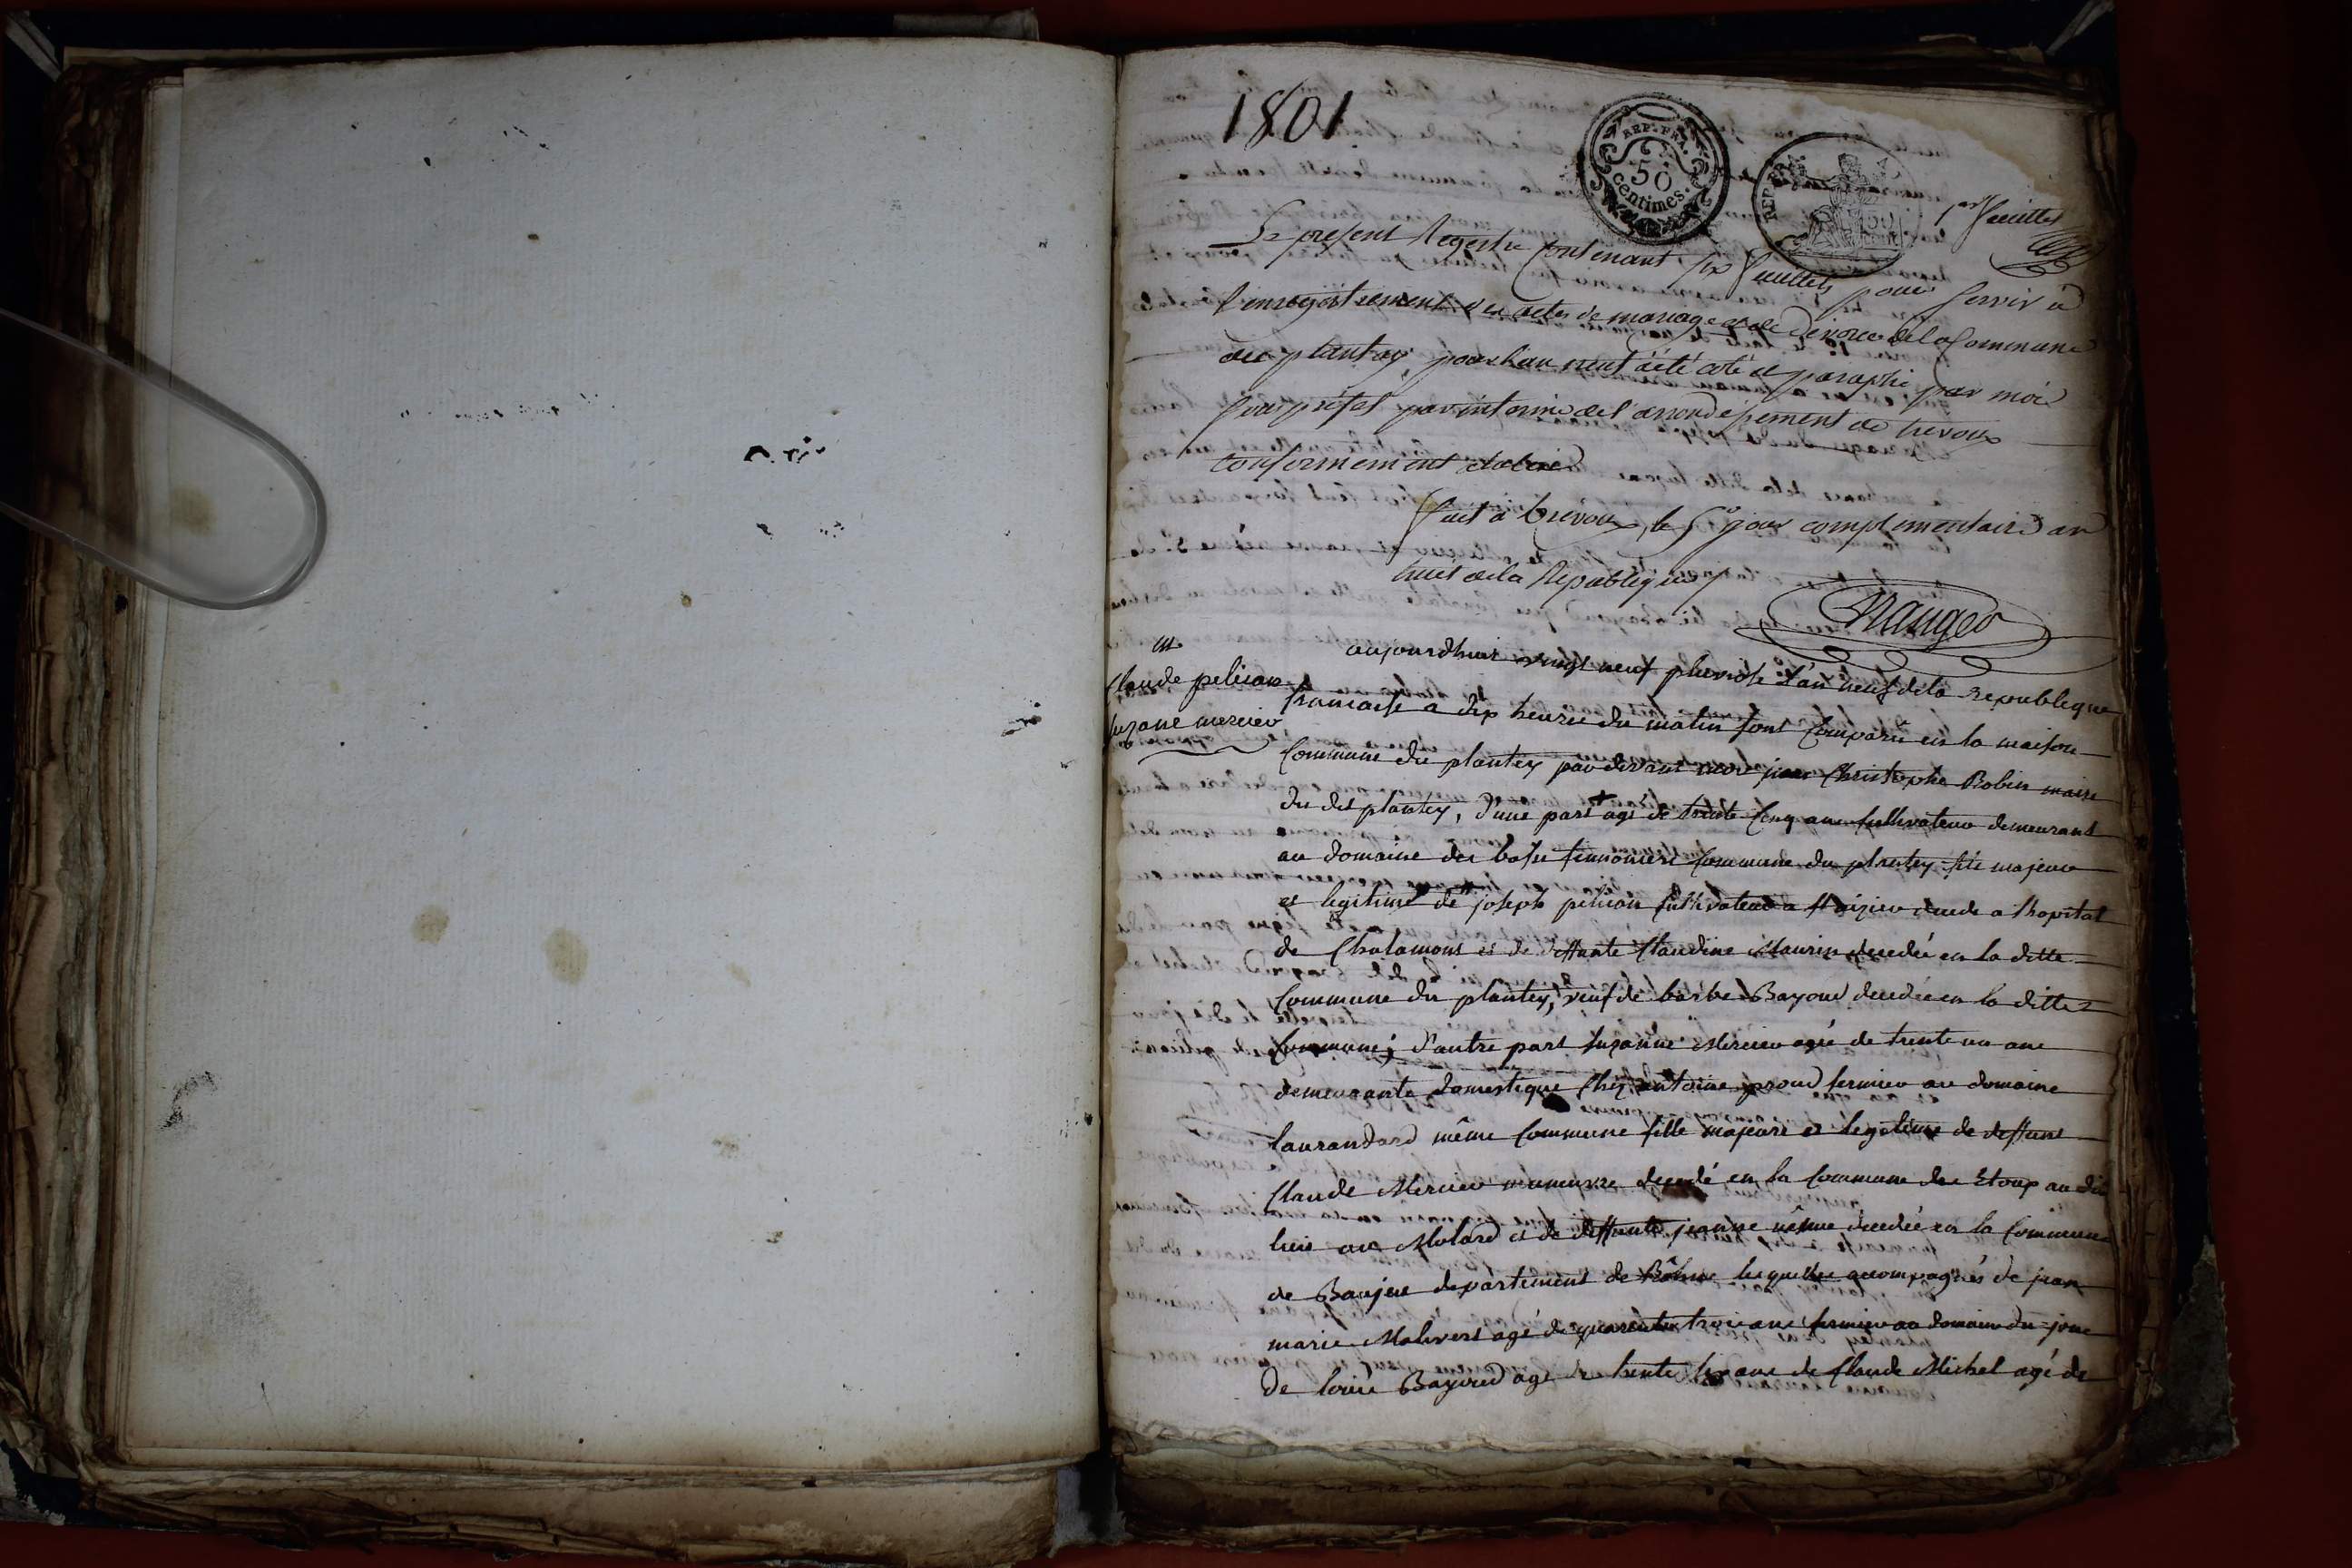 1801
REP. FRA.
50
centimes.
REP. FRA.
1er feuillet
Le present Registre contenant six feuillets pour servir à
l'enregistrement des actes de mariage et de divorce de la commune
du plantay, pour l'an neuf a été coté et paraphé par moi
sous préfet par interim de l'arrondissement de trevoux
conformement
fait à trevoux, le 5e jour complementaire an
huit de la Republique
claude pelison
suzane mercier
aujourdhui vingt neuf pluviose l'an neuf de la republique
francaise a dix heures du matin sont comparu en la maison
commune du plantey par devant moi jean Christophe Robin maire
du dit plantey, d'une part + agé de trente cinq ans cultivateur demeurant
au domaine des commune du plantey fils majeur
et legitime de joseph pelison cultivateur a decede a l'hopital
de Chalamont et de deffunte Claudine Maurin decedée en la ditte
commune du plantey, veuf de barbe Bayoud decedée en la ditte
commune; d'autre part suzanne Mercier agé de trente un ans
demeurante domestique chez antoine proud fermier au domaine
même commune fille majeure et legitime de deffunt
Claude Mercier decedé en la commune des Etoux au dit
lieu au Molard et de deffunte jeanne même decedée en la commune
de Baujeu departement de Rhône lesquelles accompagnés de jean
marie Malivert agé de quarante trois ans fermier au domaine du jonc
de Bayoud agé de trente six ans de Claude Michel agé de